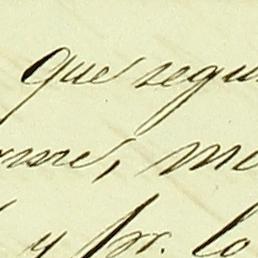 que segu
me, me
y pr. lo